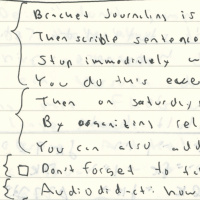 Bracket Journaling is
Then scribble sentence
Stop immediately w
You do this exce
Then on saturday,
By organizing rel
You can also add
Don't forget to ta
Audiodidact how